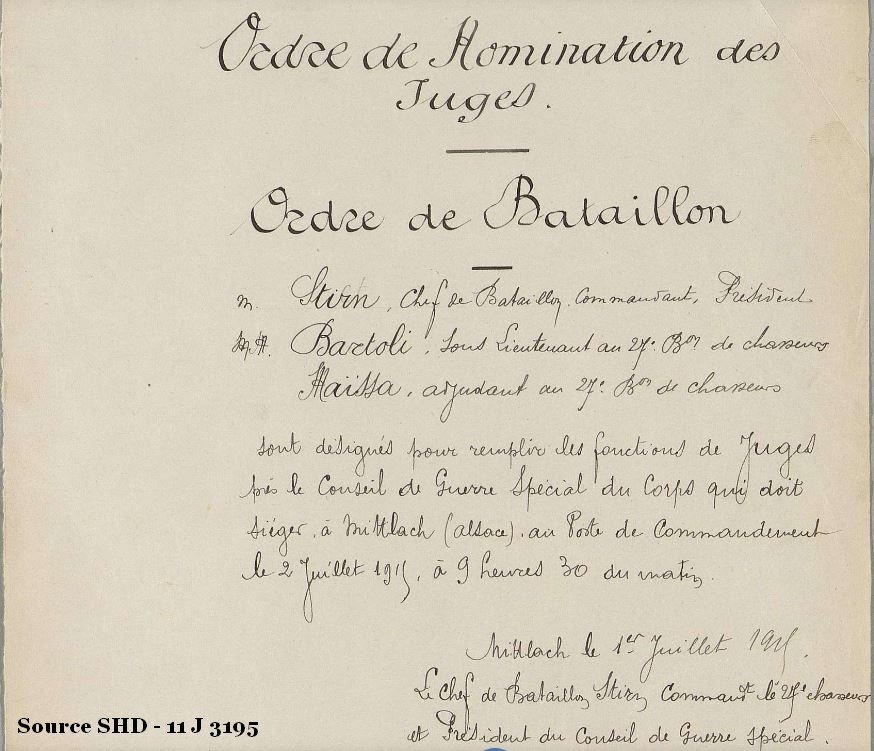 Ordre de Nomination des
Juges.
Ordre de Bataillon
M. Stirn, Chef de Bataillon Commandant, Président
MM. Bartoli, Sous Lieutenant au 27e Bon de chasseurs
Maïssa, adjudant au 27e Bon de chasseurs
sont désignés pour remplir les fonctions de Juges
près le Conseil de Guerre Spécial du Corps qui doit
siéger, à Mittlach (alsace), au Poste de Commandement
le 2 Juillet 1915, à 9 heures 30 du matin.
Mittlach le 1er Juillet 1915.
Le Chef de Bataillon Stirn Commandt le 27e chasseurs
et Président du Conseil de Guerre Spécial.
Source SHD - 11 J 3195